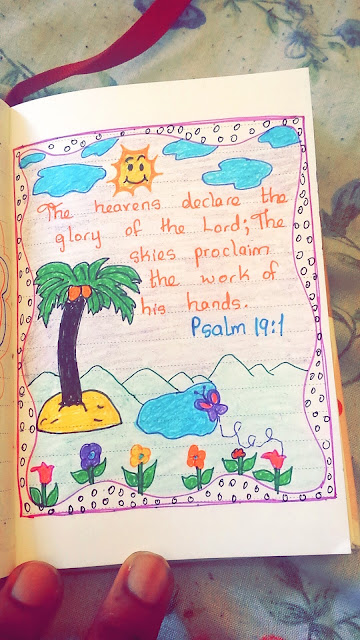 The heavens declare the
glory of the Lord; The
skies proclaim
the work of
his hands.
Psalm 19:1